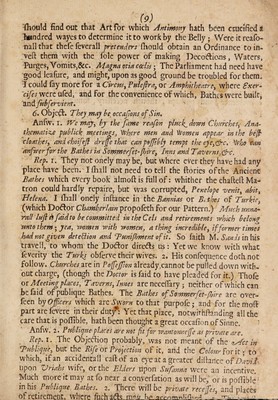 (9)
should find out that Art for which Antimony hath been crucified a
hundred wayes to determine it to work by the Belly; Were it reaso-
nall that these severall pretenders should obtain an Ordinance to in-
vest them with the sole power of making Decoctions, Waters,
Purges, Vomits, &c. Magna eria calij: The Parliament had need have
good leasure, and might, upon as good ground be troubled for them.
I could say more for a Circus, Palestra, or Amphitheatre, where Exer-
cises were used, and for the convenience of which, Baths were built,
and subservient.
6. Object. They may be occasions of Sin.
Answ. 1. We may, by the same reason pluck down Churches, Ana-
thematize publick meetings, Where men and Women appear in the best
cloathes, and chiefest dresse that can possibly tempt the eye, &c. Who can
answer for the Bathes in Sommersetshire, Inns and Taverns, &c.
Rep. 1. They not onely may be, but where ever they have had any
place have been. I shall not need to tell the stories of the Ancient
Bathes which every book almost is full of: whither the chastest Ma-
tron could hardly repaire, but was corrupted, Penelope venit, abit,
Helena. I shall only instance in the Banniar or Baines of Turkie,
(which Doctor Chamberlan proposeth for our Pattern.) Much unna-
rall lust is said to be committed in the Cels and retirements which belong
unto them; yea, women with women, a thing incredible, if former times
had not given detection and Punishment of it. So saith M. Sands in his
travell, to whom the Doctor directs us: Yet we know with what
severity the Turks observe their wives. 2. His consequence doth not
follow. Churches are in Possession already, cannot be pulled down with-
out charge, (though the Doctor is said to have pleaded for it.) Those
or Meeting places, Taverns, Innes are necessary; neither of which can
be said of publique Bathes. The Bathes of Sommersetshire are over-
seen by Officers which are Sworn to that purpose; and for the most
part are severe in their duty. Yet that place, notwithstanding all the
care that is possible, hath been thought a great occasion of Sinne.
Answ. 2. Publique places are not fit for wantonnesse as private are.
Rep. 1. The Objection probably, was not meant of the Act in
Publique, but the Rise or Projection of it, and the Colour for it; to
which, if an accidentall cast of an eye at a greater distance of David
upon Uriahs wife, or the Elders upon Susanna were an incentive.
Much more it may at so near a conversation as will be, or is possible
in his Publique Bathes. 2. There will be private recesses, and places
of retirement, where such acts may be accomplished